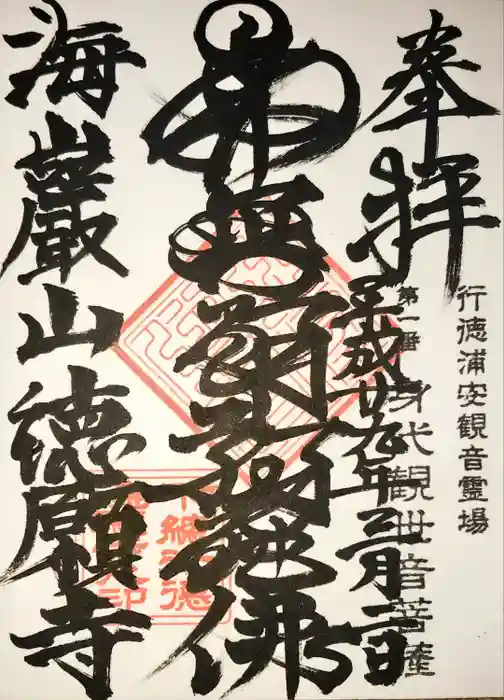 行徳浦安観音靈場
第一番 身代観世音菩薩
奉拝
平成廿九年
南無阿弥陀佛
下總行徳
海巌山徳願寺